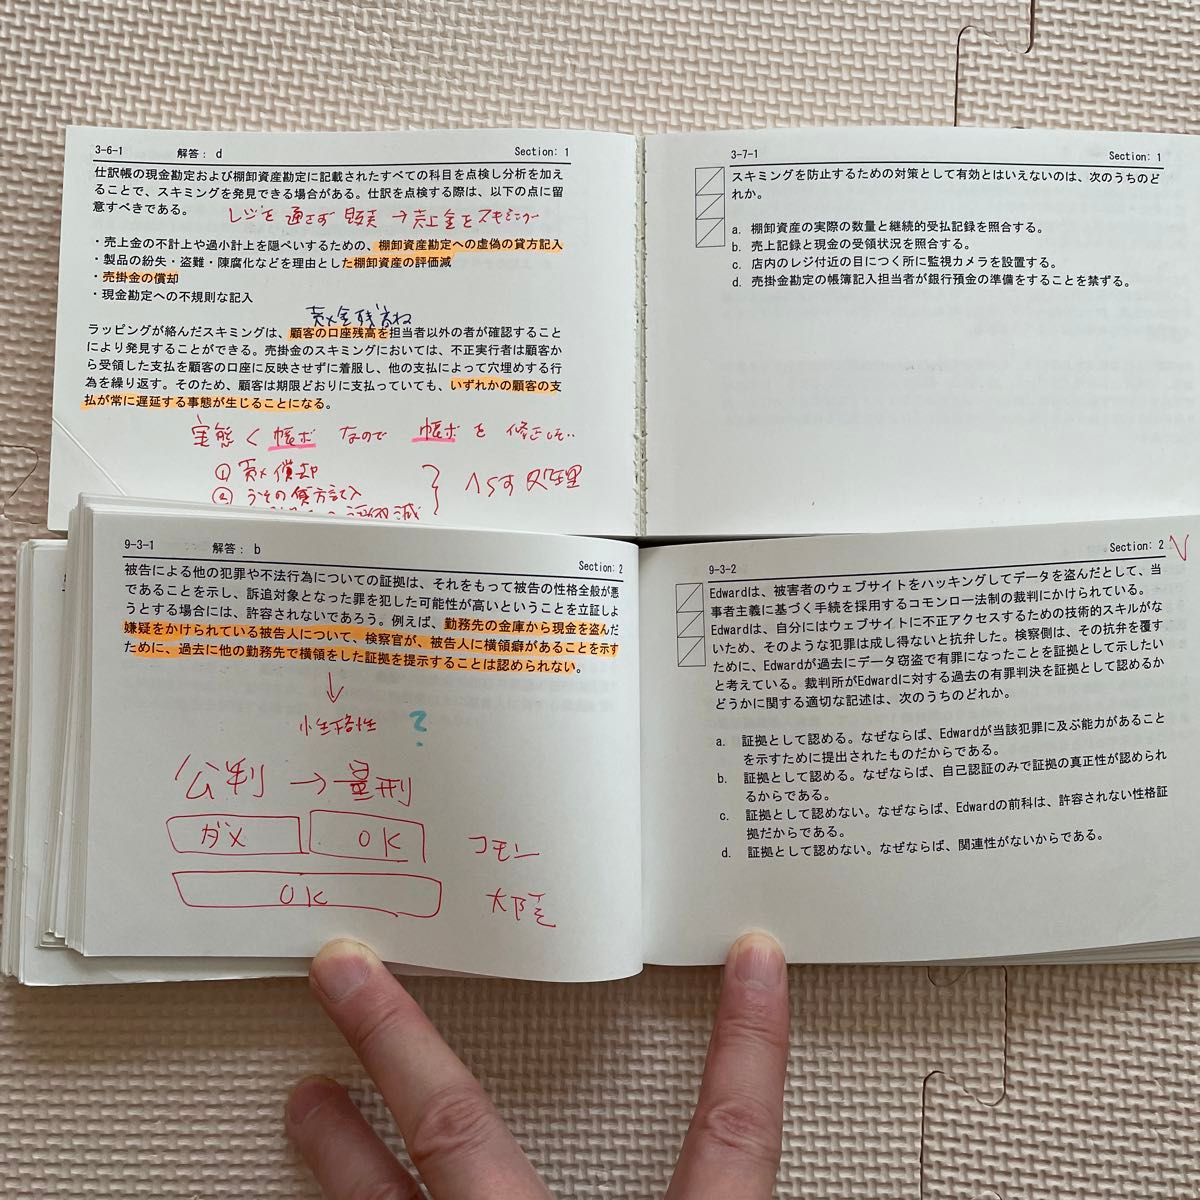 3-6-1 解答: d Section: 1
仕訳帳の現金勘定および棚卸資産勘定に記載されたすべての科目を点検し分析を加え
ることで、スキミングを発見できる場合がある。仕訳を点検する際は、以下の点に留
意すべきである。
レジを通さず 販売 → 売上金をスキミング
・売上金の不計上や過小計上を隠ぺいするための、棚卸資産勘定への虚偽の貸方記入
・製品の紛失・盗難・陳腐化などを理由とした棚卸資産の評価減
・売掛金の償却
・現金勘定への不規則な記入
ラッピングが絡んだスキミングは、顧客の口座残高を担当者以外の者が確認すること
により発見することができる。売掛金のスキミングにおいては、不正実行者は顧客か
ら受領した支払を顧客の口座に反映させずに着服し、他の支払によって穴埋めする行
為を繰り返す。そのため、顧客は期限どおりに支払っていても、いずれかの顧客の支
払が常に遅延する事態が生じることになる。
実態 く 帳ボ なので 帳ボ を 修正したい
① 売× 償却
② うその貸方記入
へらす処理
3-7-1 Section: 1
スキミングを防止するための対策として有効とはいえないのは、次のうちのど
れか。
a. 棚卸資産の実際の数量と継続的受払記録を照合する。
b. 売上記録と現金の受領状況を照合する。
c. 店内のレジ付近の目につく所に監視カメラを設置する。
d. 売掛金勘定の帳簿記入担当者が銀行預金の準備をすることを禁ずる。
9-3-1 解答: b Section: 2
被告による他の犯罪や不法行為についての証拠は、それをもって被告の性格全般が悪
であることを示し、訴追対象となった罪を犯した可能性が高いということを立証しよ
うとする場合には、許容されないであろう。例えば、勤務先の金庫から現金を盗んだ
嫌疑をかけられている被告人について、検察官が、被告人に横領癖があることを示す
ために、過去に他の勤務先で横領をした証拠を提示することは認められない。
↓
性格性 ?
公判 → 量刑
ダメ OK コモン
OK 大陸
9-3-2 Section: 2
Edwardは、被害者のウェブサイトをハッキングしてデータを盗んだとして、当
事者主義に基づく手続を採用するコモンロー法制の裁判にかけられている。
Edwardは、自分にはウェブサイトに不正アクセスするための技術的スキルがな
いため、そのような犯罪は成し得ないと抗弁した。検察側は、その抗弁を覆す
ために、Edwardが過去にデータ窃盗で有罪になったことを証拠として示したい
と考えている。裁判所がEdwardに対する過去の有罪判決を証拠として認めるか
どうかに関する適切な記述は、次のうちのどれか。
a. 証拠として認める。なぜならば、Edwardが当該犯罪に及ぶ能力があること
を示すために提出されたものだからである。
b. 証拠として認める。なぜならば、自己認証のみで証拠の真正性が認められ
るからである。
c. 証拠として認めない。なぜならば、Edwardの前科は、許容されない性格証
拠だからである。
d. 証拠として認めない。なぜならば、関連性がないからである。